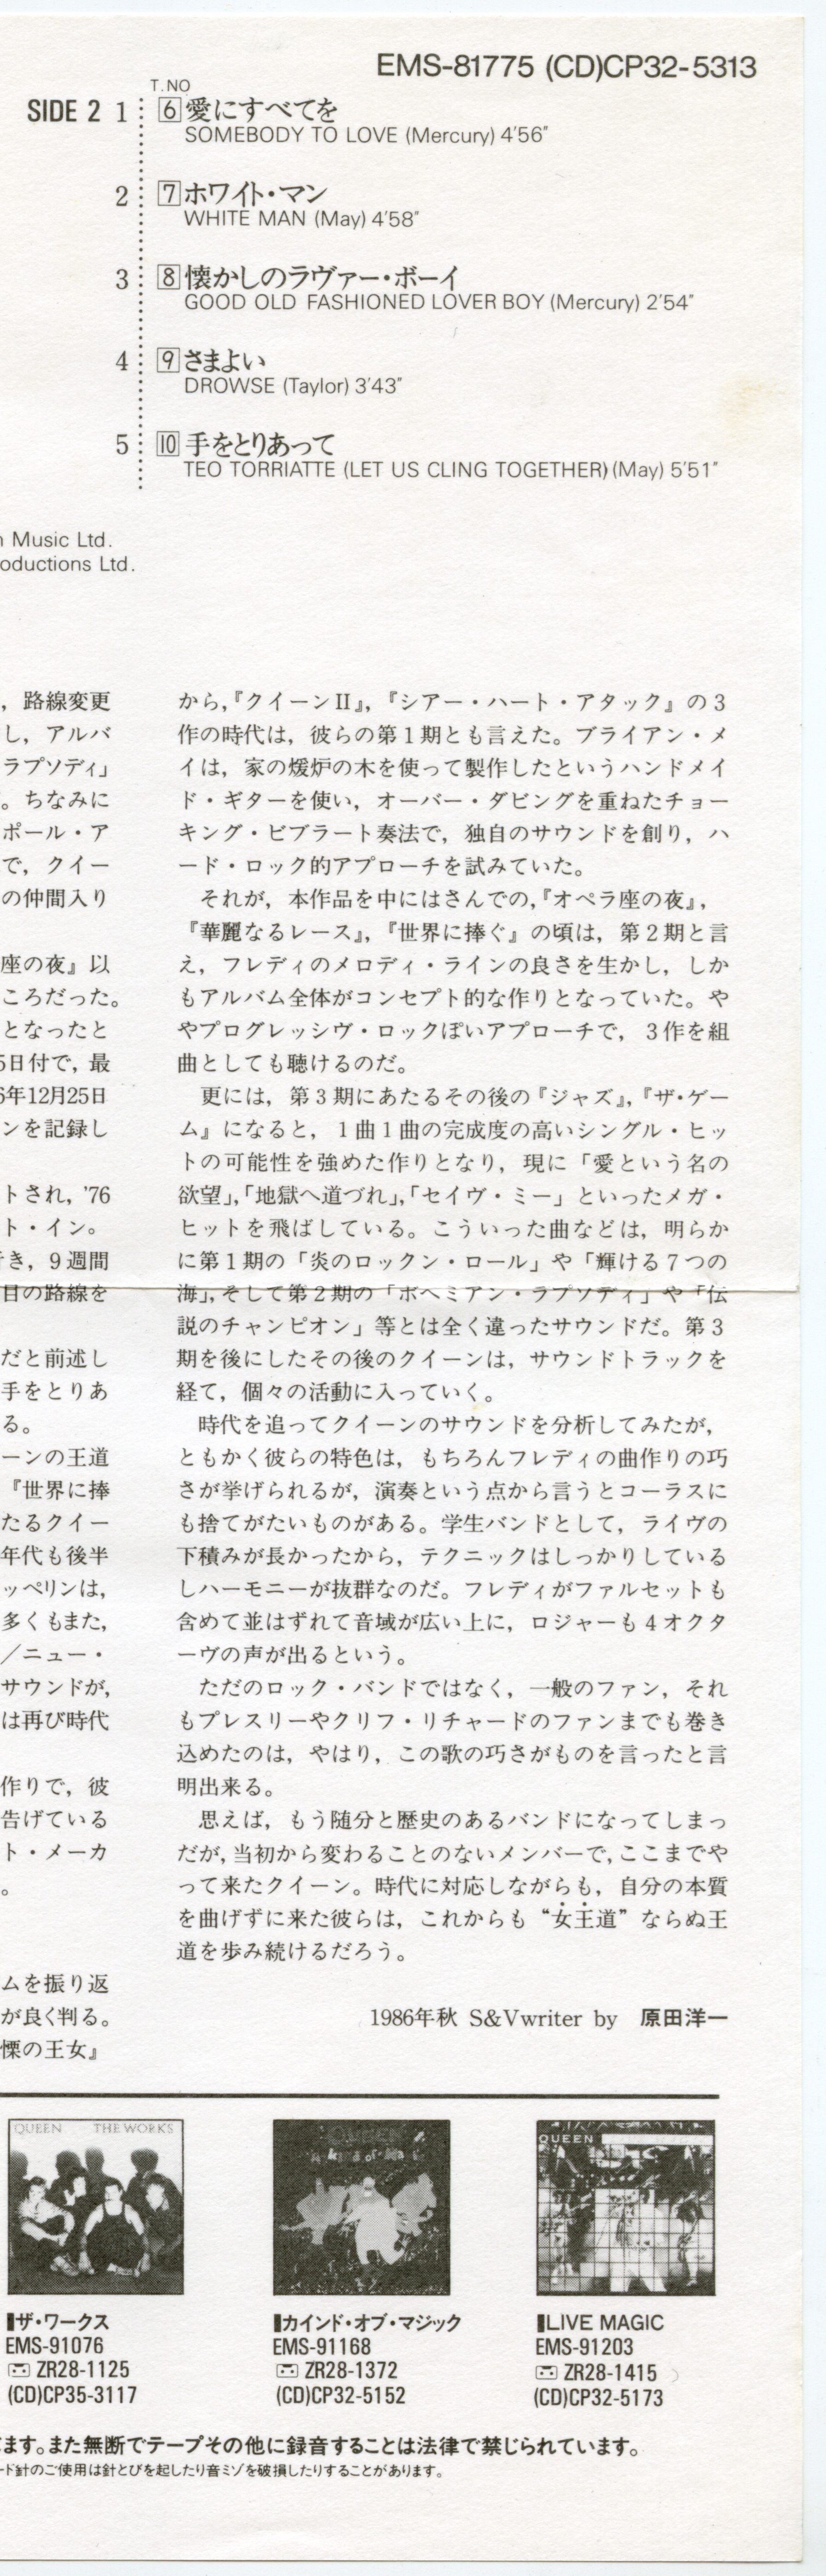 EMS-81775 (CD)CP32-5313
T.NO
SIDE 2 1 6 愛にすべてを
SOMEBODY TO LOVE (Mercury) 4'56"
2 7 ホワイト・マン
WHITE MAN (May) 4'58"
3 8 懐かしのラヴァー・ボーイ
GOOD OLD FASHIONED LOVER BOY (Mercury) 2'54"
4 9 さまよい
DROWSE (Taylor) 3'43"
5 10 手をとりあって
TEO TORRIATTE (LET US CLING TOGETHER) (May) 5'51"
Music Ltd.
oductions Ltd.
，路線変更
し，アルバ
ラプソディ」
。ちなみに
ポール・ア
で，クイー
の仲間入り
座の夜』以
ころだった。
となったと
5日付で，最
6年12月25日
ンを記録し
トされ，'76
ト・イン。
き，9週間
目の路線を
だと前述し
手をとりあ
る。
ーンの王道
『世界に捧
たるクイー
年代も後半
ッペリンは，
多くもまた，
／ニュー・
サウンドが，
は再び時代
作りで，彼
告げている
ト・メーカ
。
ムを振り返
が良く判る。
慄の王女』
から，『クイーンII』，『シアー・ハート・アタック』の3
作の時代は，彼らの第1期とも言えた。ブライアン・メ
イは，家の煖炉の木を使って製作したというハンドメイ
ド・ギターを使い，オーバー・ダビングを重ねたチョー
キング・ビブラート奏法で，独自のサウンドを創り，ハ
ード・ロック的アプローチを試みていた。
それが，本作品を中にはさんでの，『オペラ座の夜』，
『華麗なるレース』，『世界に捧ぐ』の頃は，第2期と言
え，フレディのメロディ・ラインの良さを生かし，しか
もアルバム全体がコンセプト的な作りとなっていた。や
やプログレッシヴ・ロックぽいアプローチで，3作を組
曲としても聴けるのだ。
更には，第3期にあたるその後の『ジャズ』，『ザ・ゲー
ム』になると，1曲1曲の完成度の高いシングル・ヒッ
トの可能性を強めた作りとなり，現に「愛という名の
欲望」，「地獄へ道づれ」，「セイヴ・ミー」といったメガ・
ヒットを飛ばしている。こういった曲などは，明らか
に第1期の「炎のロックン・ロール」や「輝ける7つの
海」，そして第2期の「ボヘミアン・ラプソディ」や「伝
説のチャンピオン」等とは全く違ったサウンドだ。第3
期を後にしたその後のクイーンは，サウンドトラックを
経て，個々の活動に入っていく。
時代を追ってクイーンのサウンドを分析してみたが，
ともかく彼らの特色は，もちろんフレディの曲作りの巧
さが挙げられるが，演奏という点から言うとコーラスに
も捨てがたいものがある。学生バンドとして，ライヴの
下積みが長かったから，テクニックはしっかりしている
しハーモニーが抜群なのだ。フレディがファルセットも
含めて並はずれて音域が広い上に，ロジャーも4オクタ
ーヴの声が出るという。
ただのロック・バンドではなく，一般のファン，それ
もプレスリーやクリフ・リチャードのファンまでも巻き
込めたのは，やはり，この歌の巧さがものを言ったと言
明出来る。
思えば，もう随分と歴史のあるバンドになってしまっ
だが，当初から変わることのないメンバーで，ここまでや
って来たクイーン。時代に対応しながらも，自分の本質
を曲げずに来た彼らは，これからも“女王道”ならぬ王
道を歩み続けるだろう。
1986年秋 S&Vwriter by 原田洋一
QUEEN THE WORKS
QUEEN
a kind of magic
QUEEN
ザ・ワークス
EMS-91076
ZR28-1125
(CD)CP35-3117
カインド・オブ・マジック
EMS-91168
ZR28-1372
(CD)CP32-5152
LIVE MAGIC
EMS-91203
ZR28-1415
(CD)CP32-5173
ます。また無断でテープその他に録音することは法律で禁じられています。
ード針のご使用は針とびを起したり音ミゾを破損したりすることがあります。